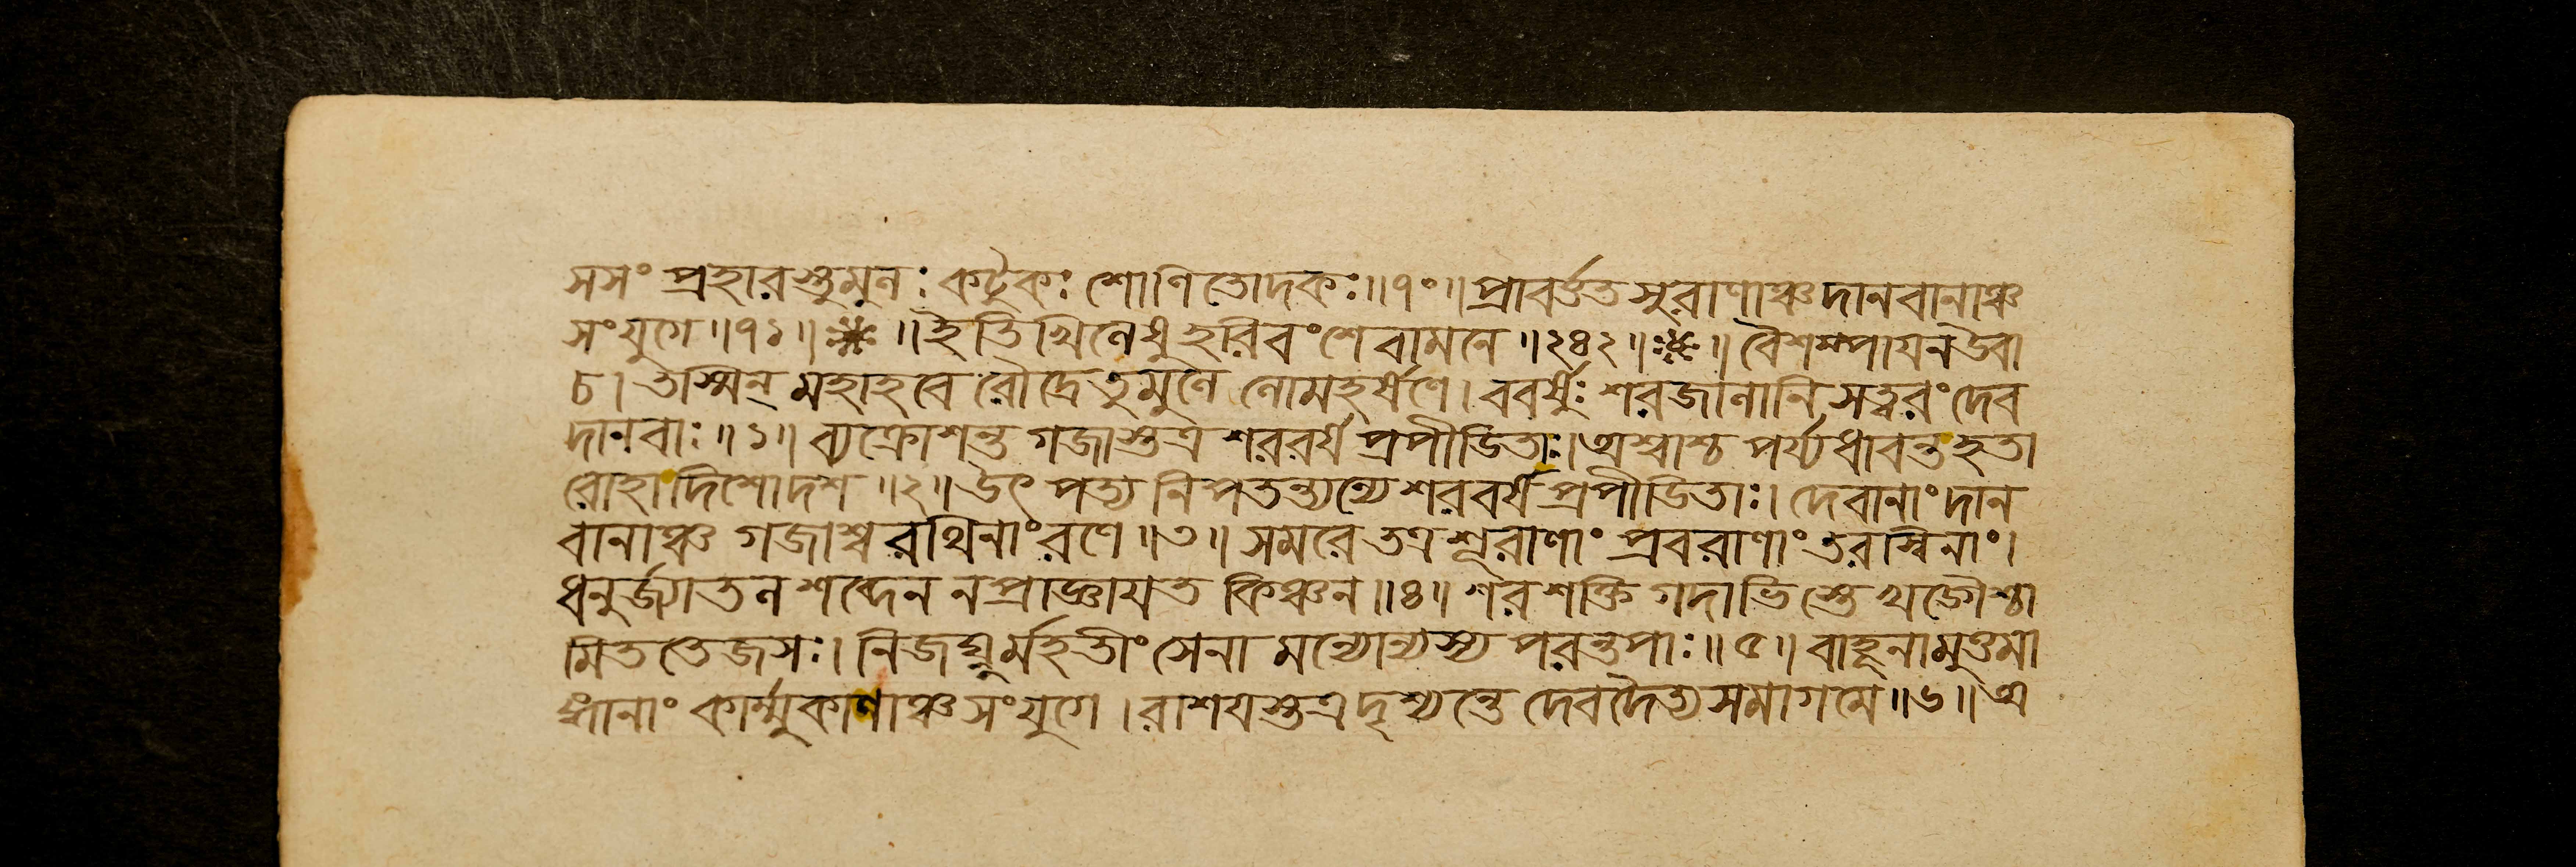 সসং প্রহারস্তুমুলঃ কটুকঃ শোণিতোদকঃ॥৭০॥প্রাবর্ত্ততসুরাণাঞ্চদানবানাঞ্চ
সংযুগে॥৭১॥ ॥ইতিখিলেষুহরিবংশেবামনে॥২৪২॥ ॥বৈশম্পায়নউবা
চ।তস্মিন্ মহাহবে রৌদ্রেতুমুলে লোমহর্ষণে।ববর্ষুঃ শরজালানি সত্ত্বরংদেব
দানবাঃ॥১॥ ব্যক্রোশন্ত গজাস্তত্র শরবর্ষ প্রপীডিতাঃ।অশ্বাশ্চ পর্য্যধাবন্তহতা
রোহাদিশোদশ॥২॥উৎ পত্য নিপতন্ত্যন্যে শরবর্ষ প্রপীডিতাঃ। দেবানাংদান
বানাঞ্চ গজাশ্বরথিনাংরণে॥৩॥ সমরে তত্রশূরাণাং প্রবরাণাং তরস্বিনাং।
ধনুর্জ্যাতল শব্দেন নপ্রাজ্ঞায়ত কিঞ্চন॥৪॥ শরশক্তি গদাভিস্তে খড্গৈশ্চা
মিততেজসঃ। নিজঘ্নুর্মহতীংসেনা মন্যোন্যস্য পরন্তপাঃ॥৫॥ বাহূনামুত্তমা
ঙ্গানাং কার্ম্মুকাণাঞ্চসংযুগে।রাশয়স্তত্রদৃশ্যন্তে দেবদৈত্যসমাগমে॥৬॥অ